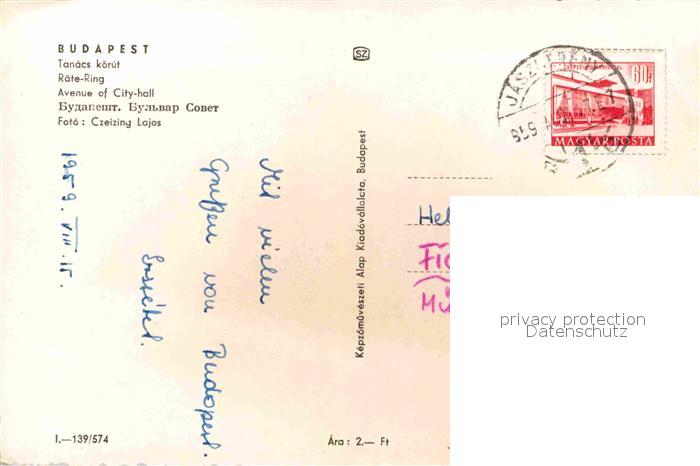 BUDAPEST
Tanács körút
Räte-Ring
Avenue of City-hall
Будапешт. Бульвар Совет
Fotó : Czeizing Lajos
SZ
60f
MAGYAR POSTA
1959. VIII. 15.
Mit vielen
Grüßen von Budapest.
Erzsébet.
Képzőművészeti Alap Kiadóvállalata, Budapest
Hel
Fic
Mü
privacy protection
Datenschutz
I.—139/574
Ára : 2.— Ft